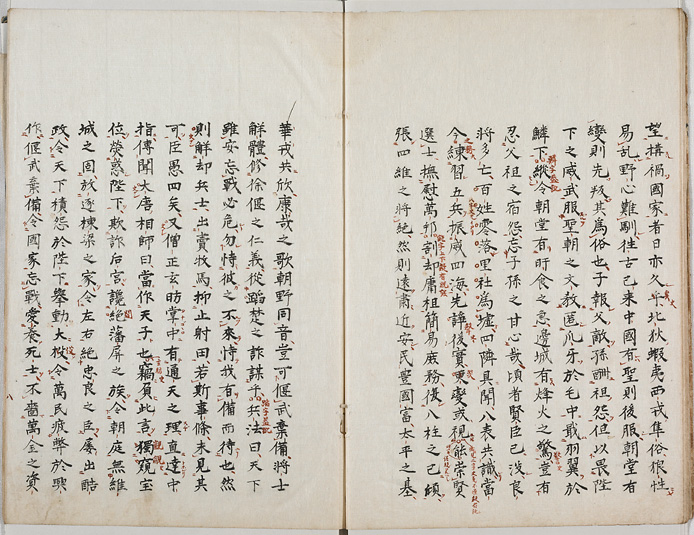 望構禍國家者日亦久乎北狄蝦夷西戎隼俗狼性
易乱野心難馴往古已来中國有聖則後服朝堂有
變則先叛其為俗也子報父敵孫酬祖怨但以畏陛
下之威武服聖朝之文教匿爪牙於毛中戢羽翼於
鱗下縱令朝堂有旰食之急邊城有烽火之驚豈有
忍父祖之宿怨忘子孫之甘心哉頃者賢臣已没良
將多亡百姓零落里社為墟四隣具聞八表共識當
今練習五兵振威四海先誅後實東或視能崇賢
選士撫慰萬邦割却庸租簡易庶務復八柱之已傾
張四維之將絶然則遠肅近安民豊國富太平之基
華戎共欣康哉之歌朝野同音豈可偃武棄備將士
解體修徐偃之仁義從蹈楚之詐謀乎兵法曰天下
雖安忘戰必危勿恃彼之不來恃我有備而待也然
則解却兵士出賣牧馬抑止射田若斯事條未見其
可臣愚四矣又僧正玄昉掌中有通天之理直達中
指傳聞大唐相師曰當作天子也竊負此言獨窺宝
位熒惑陛下欺詐后宮讒絶藩屏之族令朝庭無維
城之固放逐棟梁之家令左右絶忠良之臣屡出酷
政令天下積怨於陛下擧動大役令萬民疲弊於興
作偃武棄備令國家忘戰愛養死士不嗇萬金之資